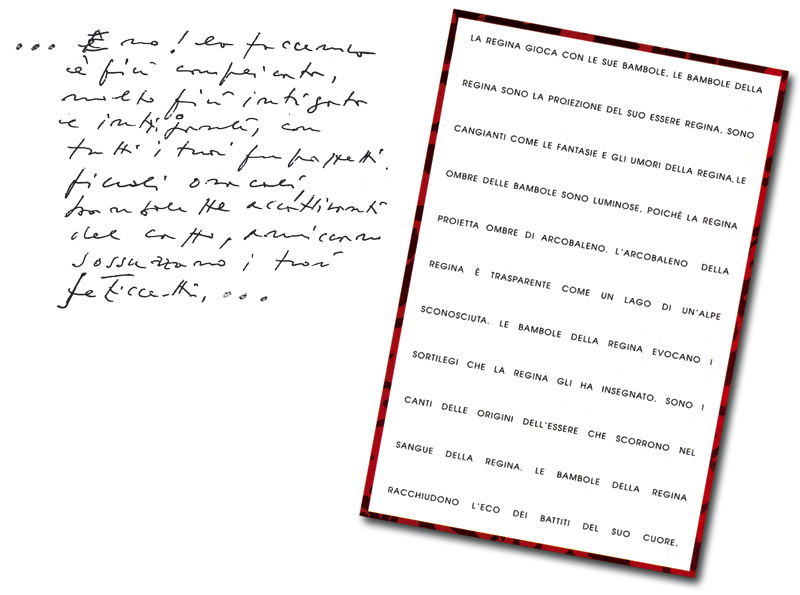 ... E no! la faccenda
è più complicata,
molto più intrigata
e intrigante, con
tutti i tuoi
piccoli oracoli,
bambolette accattivanti
del cazzo, ammiccano
sussurrano i tuoi
feticcetti, ...
LA REGINA GIOCA CON LE SUE BAMBOLE. LE BAMBOLE DELLA
REGINA SONO LA PROIEZIONE DEL SUO ESSERE REGINA. SONO
CANGIANTI COME LE FANTASIE E GLI UMORI DELLA REGINA. LE
OMBRE DELLE BAMBOLE SONO LUMINOSE, POICHÈ LA REGINA
PROIETTA OMBRE DI ARCOBALENO. L'ARCOBALENO DELLA
REGINA È TRASPARENTE COME UN LAGO DI UN'ALPE
SCONOSCIUTA. LE BAMBOLE DELLA REGINA EVOCANO I
SORTILEGI CHE LA REGINA GLI HA INSEGNATO. SONO I
CANTI DELLE ORIGINI DELL'ESSERE CHE SCORRONO NEL
SANGUE DELLA REGINA. LE BAMBOLE DELLA REGINA
RACCHIUDONO L'ECO DEI BATTITI DEL SUO CUORE.